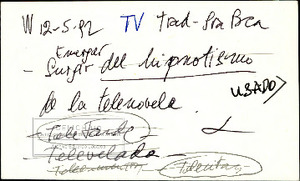 W 12-5-92 TV Trad-Sra Brea
Emerger
- Surgir del hipnotismo
de la telenovela.
USADO>
- Tele Tarde
- Televelada